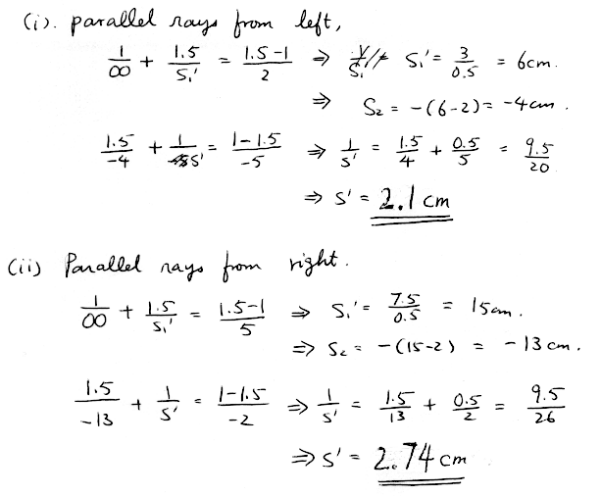 (i). parallel rays from left,
1/∞ + 1.5/S₁' = 1.5-1/2 ⇒ S₁' = 3/0.5 = 6cm.
⇒ S₂ = -(6-2) = -4cm.
1.5/-4 + 1/S' = 1-1.5/-5 ⇒ 1/S' = 1.5/4 + 0.5/5 = 9.5/20
⇒ S' = 2.1 cm
(ii) Parallel rays from right.
1/∞ + 1.5/S₁' = 1.5-1/5 ⇒ S₁' = 7.5/0.5 = 15cm.
⇒ S₂ = -(15-2) = -13cm.
1.5/-13 + 1/S' = 1-1.5/-2 ⇒ 1/S' = 1.5/13 + 0.5/2 = 9.5/26
⇒ S' = 2.74 cm